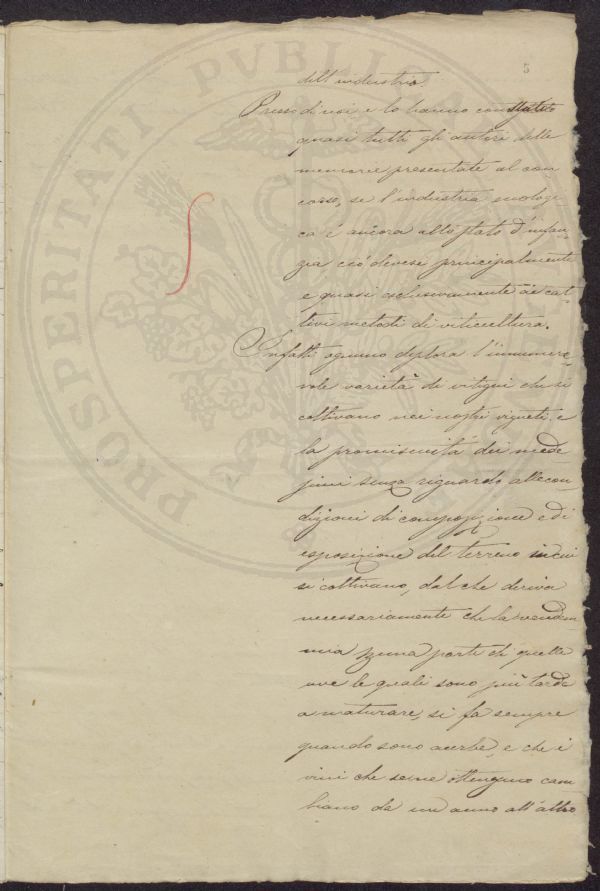 5
dell'industria.
Presso di noi e lo hanno constatato
quasi tutti gli autori delle
memorie presentate al con
corso, se l'industria enologi
ca è ancora allo stato d'infan
zia ciò devesi principalmente
e quasi esclusivamente ai cat
tivi metodi di viticultura.
Infatti ognuno deplora l'innumere
vole varietà di vitigni che si
coltivano nei nostri vigneti e
la promiscuità dei mede
simi senza riguardo alle con
dizioni di composizione e di
esposizione del terreno in cui
si coltivano, dal che deriva
necessariamente che la vendem
mia una parte di quelle
uve le quali sono più tarde
a maturare, si fa sempre
quando sono acerbe, e che i
vini che se ne ottengono cam
biano da un anno all'altro
PROSPERITATI PVBLICAE